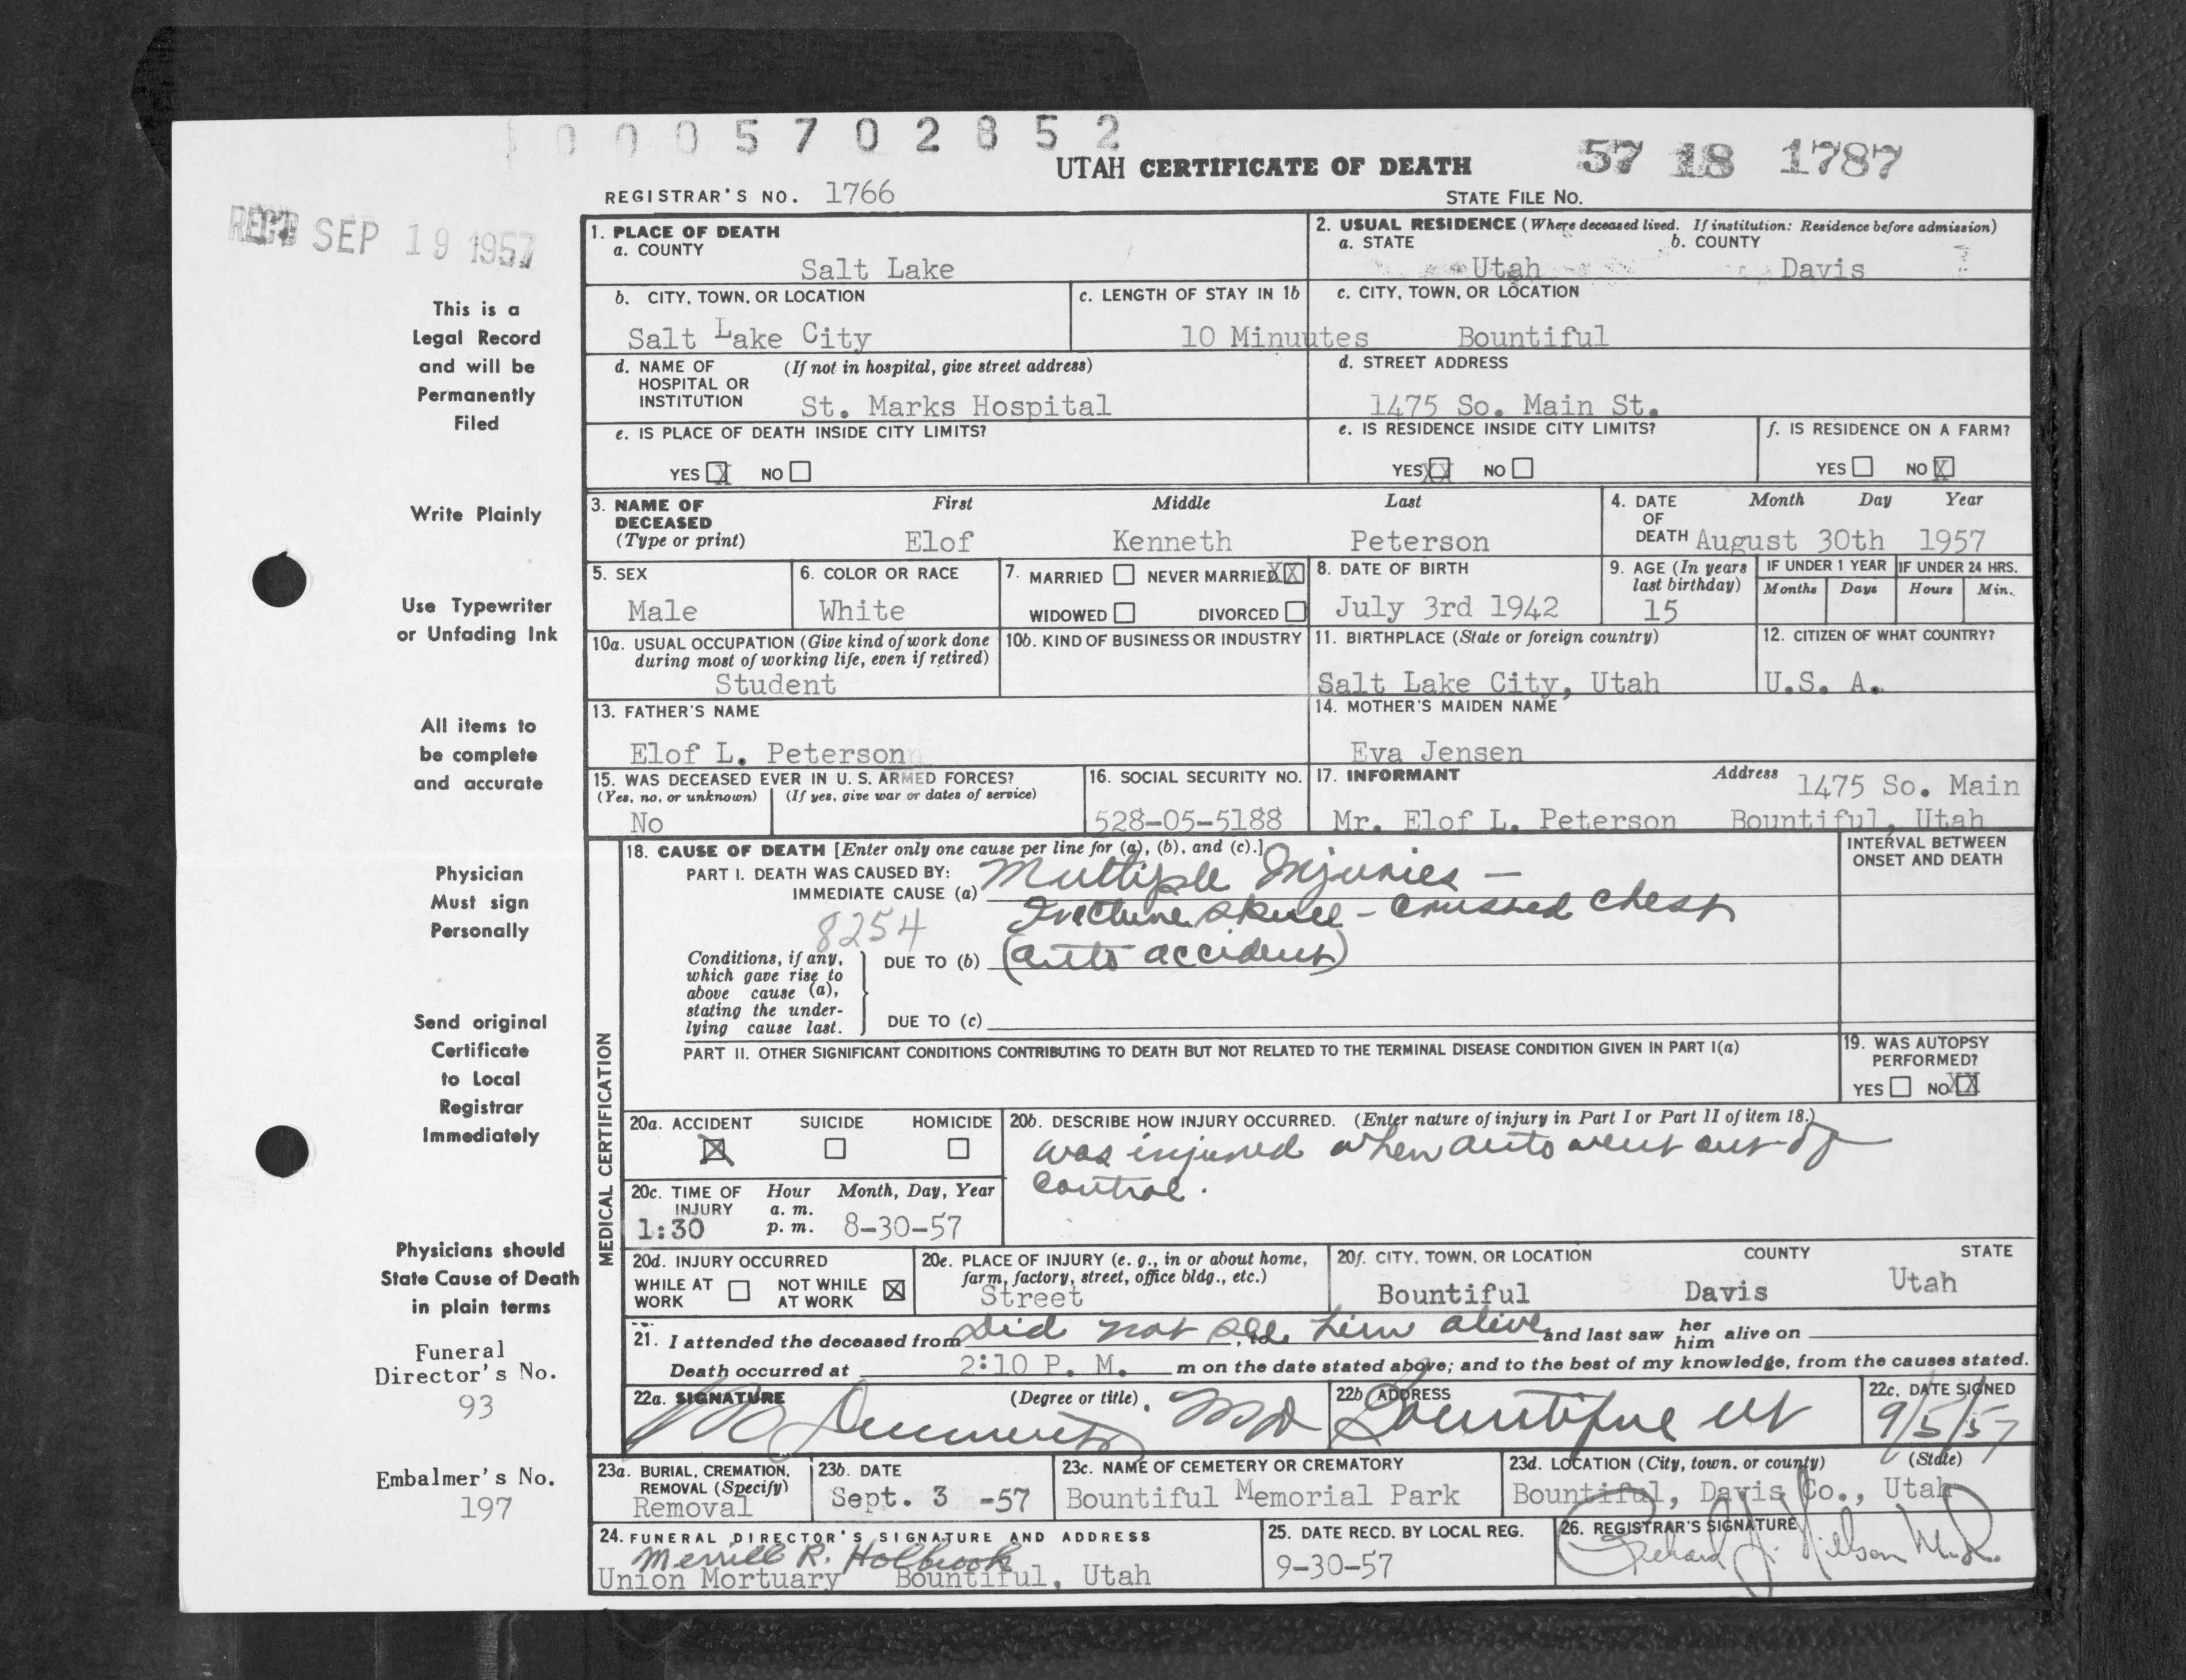 0005702852
UTAH CERTIFICATE OF DEATH
57 18 1787
REGISTRAR'S NO. 1766
STATE FILE NO.
REC'D SEP 19 1957
This is a
Legal Record
and will be
Permanently
Filed
Write Plainly
Use Typewriter
or Unfading Ink
All items to
be complete
and accurate
Physician
Must sign
Personally
Send original
Certificate
to Local
Registrar
Immediately
Physicians should
State Cause of Death
in plain terms
Funeral
Director's No.
93
Embalmer's No.
197
1. PLACE OF DEATH
a. COUNTY
Salt Lake
2. USUAL RESIDENCE (Where deceased lived. If institution: Residence before admission)
a. STATE b. COUNTY
Utah Davis
b. CITY, TOWN, OR LOCATION
Salt Lake City
c. LENGTH OF STAY IN 1b
10 Minuutes
c. CITY, TOWN, OR LOCATION
Bountiful
d. NAME OF (If not in hospital, give street address)
HOSPITAL OR
INSTITUTION St. Marks Hospital
d. STREET ADDRESS
1475 So. Main St.
e. IS PLACE OF DEATH INSIDE CITY LIMITS?
YES X NO
e. IS RESIDENCE INSIDE CITY LIMITS?
YES XX NO
f. IS RESIDENCE ON A FARM?
YES NO X
3. NAME OF First Middle Last
DECEASED
(Type or print) Elof Kenneth Peterson
4. DATE Month Day Year
OF
DEATH August 30th 1957
5. SEX
Male
6. COLOR OR RACE
White
7. MARRIED NEVER MARRIED XX
WIDOWED DIVORCED
8. DATE OF BIRTH
July 3rd 1942
9. AGE (In years
last birthday)
15
IF UNDER 1 YEAR IF UNDER 24 HRS.
Months Days Hours Min.
10a. USUAL OCCUPATION (Give kind of work done
during most of working life, even if retired)
Student
10b. KIND OF BUSINESS OR INDUSTRY
11. BIRTHPLACE (State or foreign country)
Salt Lake City, Utah
12. CITIZEN OF WHAT COUNTRY?
U.S. A.
13. FATHER'S NAME
Elof L. Peterson
14. MOTHER'S MAIDEN NAME
Eva Jensen
15. WAS DECEASED EVER IN U. S. ARMED FORCES?
(Yes, no, or unknown) (If yes, give war or dates of service)
No
16. SOCIAL SECURITY NO.
528-05-5188
17. INFORMANT Address 1475 So. Main
Mr. Elof L. Peterson Bountiful, Utah
MEDICAL CERTIFICATION
18. CAUSE OF DEATH [Enter only one cause per line for (a), (b), and (c).]
PART I. DEATH WAS CAUSED BY:
IMMEDIATE CAUSE (a) Multiple Injuries -
Fracture skull - crushed chest
8254
Conditions, if any,
which gave rise to
above cause (a),
stating the under-
lying cause last.
DUE TO (b) (auto accident)
DUE TO (c)
INTERVAL BETWEEN
ONSET AND DEATH
PART II. OTHER SIGNIFICANT CONDITIONS CONTRIBUTING TO DEATH BUT NOT RELATED TO THE TERMINAL DISEASE CONDITION GIVEN IN PART I(a)
19. WAS AUTOPSY
PERFORMED?
YES NO XX
20a. ACCIDENT SUICIDE HOMICIDE
X
20b. DESCRIBE HOW INJURY OCCURRED. (Enter nature of injury in Part I or Part II of item 18.)
was injured when auto went out of
control.
20c. TIME OF Hour Month, Day, Year
INJURY a. m.
1:30 p. m. 8-30-57
20d. INJURY OCCURRED
WHILE AT NOT WHILE
WORK AT WORK X
20e. PLACE OF INJURY (e. g., in or about home,
farm, factory, street, office bldg., etc.)
Street
20f. CITY, TOWN, OR LOCATION COUNTY STATE
Bountiful Davis Utah
21. I attended the deceased from did not see him alive, to and last saw her him alive on
Death occurred at 2:10 P. M. m on the date stated above; and to the best of my knowledge, from the causes stated.
22a. SIGNATURE (Degree or title)
MD
22b ADDRESS
Bountiful Ut
22c. DATE SIGNED
9/5/57
23a. BURIAL, CREMATION,
REMOVAL (Specify)
Removal
23b. DATE
Sept. 3 -57
23c. NAME OF CEMETERY OR CREMATORY
Bountiful Memorial Park
23d. LOCATION (City, town, or county) (State)
Bountiful, Davis Co., Utah
24. FUNERAL DIRECTOR'S SIGNATURE AND ADDRESS
Merrill R. Holbrook
Union Mortuary Bountiful, Utah
25. DATE RECD. BY LOCAL REG.
9-30-57
26. REGISTRAR'S SIGNATURE